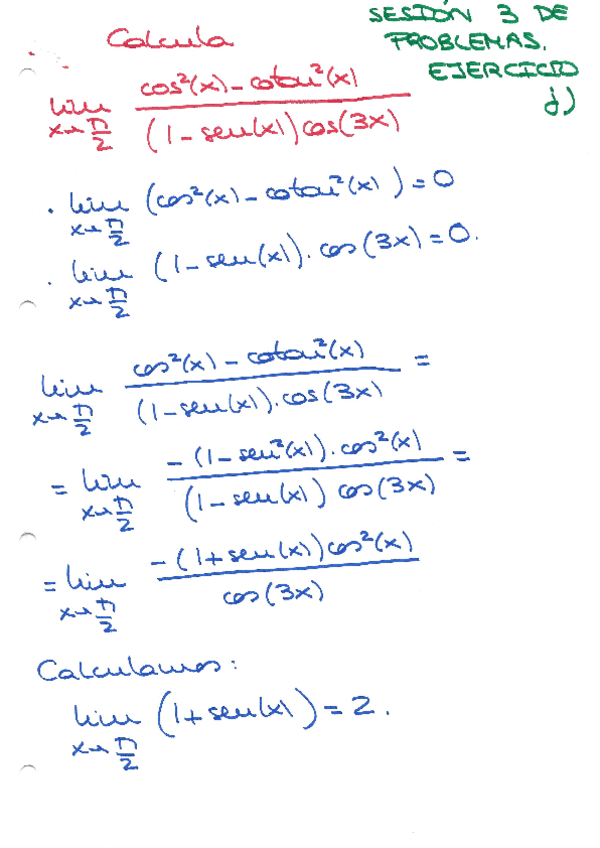 SESIÓN 3 DE
PROBLEMAS.
EJERCICIO
d)
Calcula
lim x→π/2 (cos²(x) - cotan²(x)) / ((1 - sen(x)) cos(3x))
· lim x→π/2 (cos²(x) - cotan²(x)) = 0
· lim x→π/2 (1 - sen(x)). cos(3x) = 0.
lim x→π/2 (cos²(x) - cotan²(x)) / ((1 - sen(x)). cos(3x)) =
= lim x→π/2 (-(1 - sen²(x)). cos²(x)) / ((1 - sen(x)) cos(3x)) =
= lim x→π/2 (-(1 + sen(x)) cos²(x)) / (cos(3x))
Calculamos:
lim x→π/2 (1 + sen(x)) = 2.